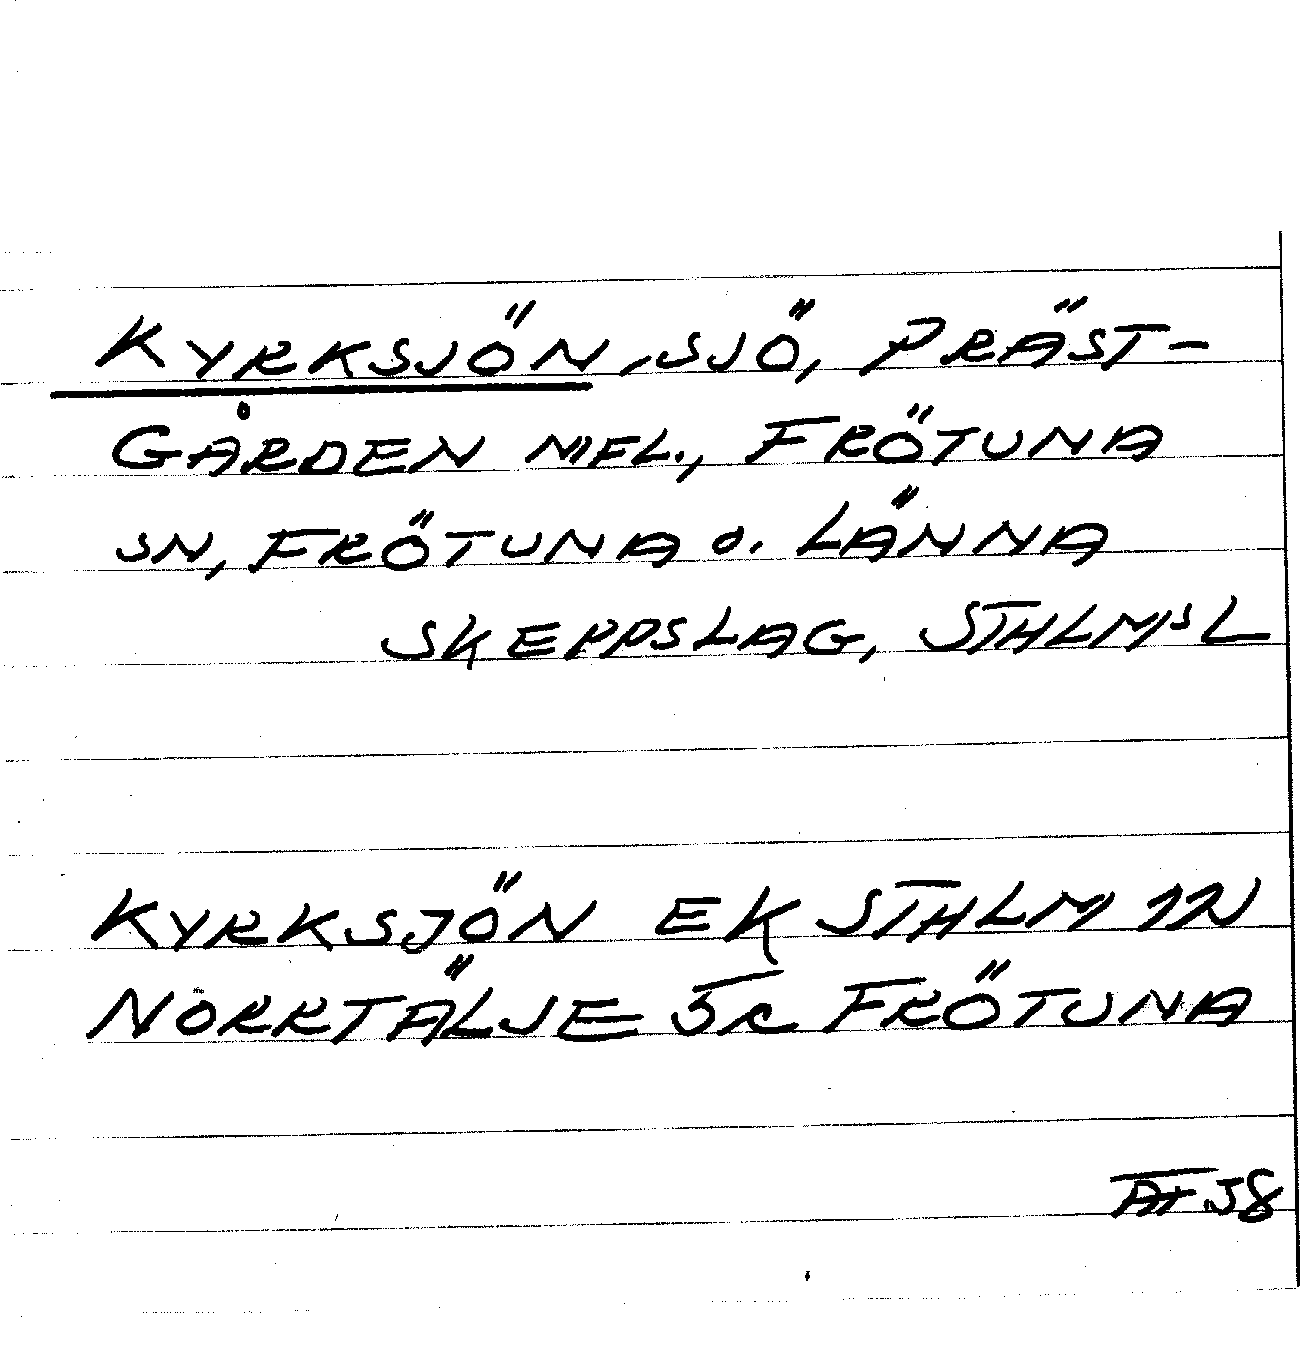 KYRKSJÖN, SJÖ, PRÄST-
GÅRDEN MFL., FRÖTUNA
SN, FRÖTUNA O. LÄNNA
SKEPPSLAG, STHLMS L
KYRKSJÖN EK STHLM
NORRTÄLJE FRÖTUNA